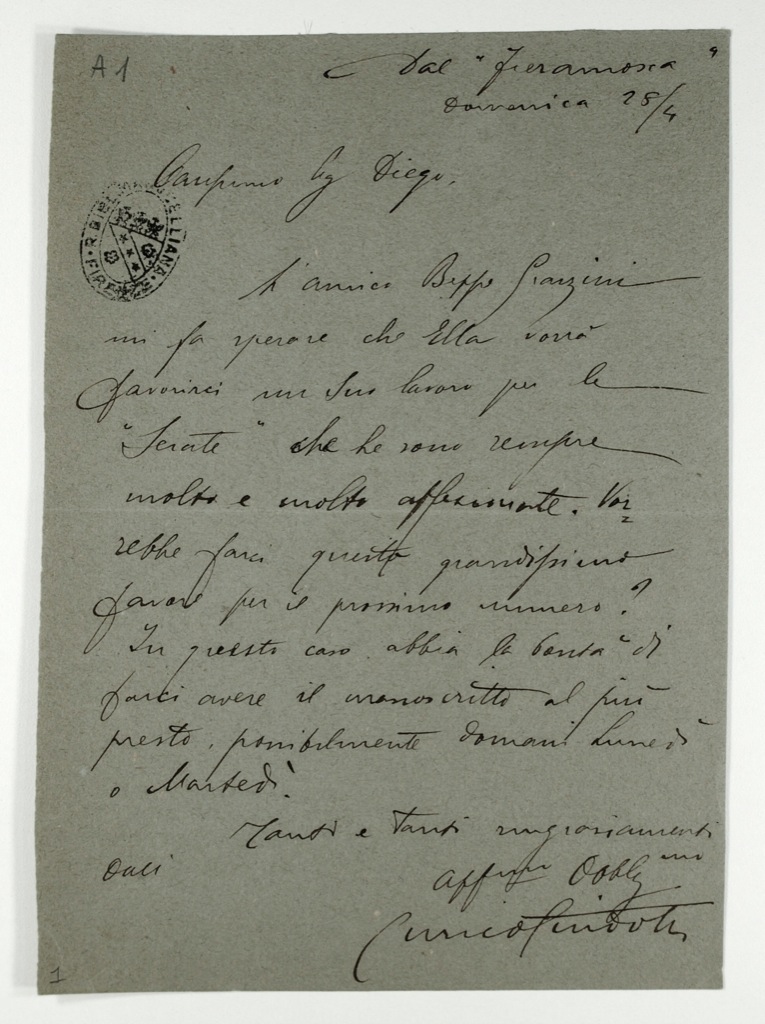 A1
Dal "Fieramosca"
Domenica 28/4
Carissimo Sig Diego,
R. BIBL. MARUCELLIANA FIRENZE
L'amico Beppe
mi fa sperare che Ella vorrà
favorirci un Suo lavoro per le
"Serate" che le sono sempre
molto e molto affezionate. Vor=
rebbe farci questo grandissimo
favore per il prossimo numero?
In questo caso abbia la bontà di
farci avere il manoscritto al più
presto, possibilmente domani Lunedì
o Martedì.
Tanti e tanti ringraziamenti
dall
affmo Obblgmo
Enrico
1